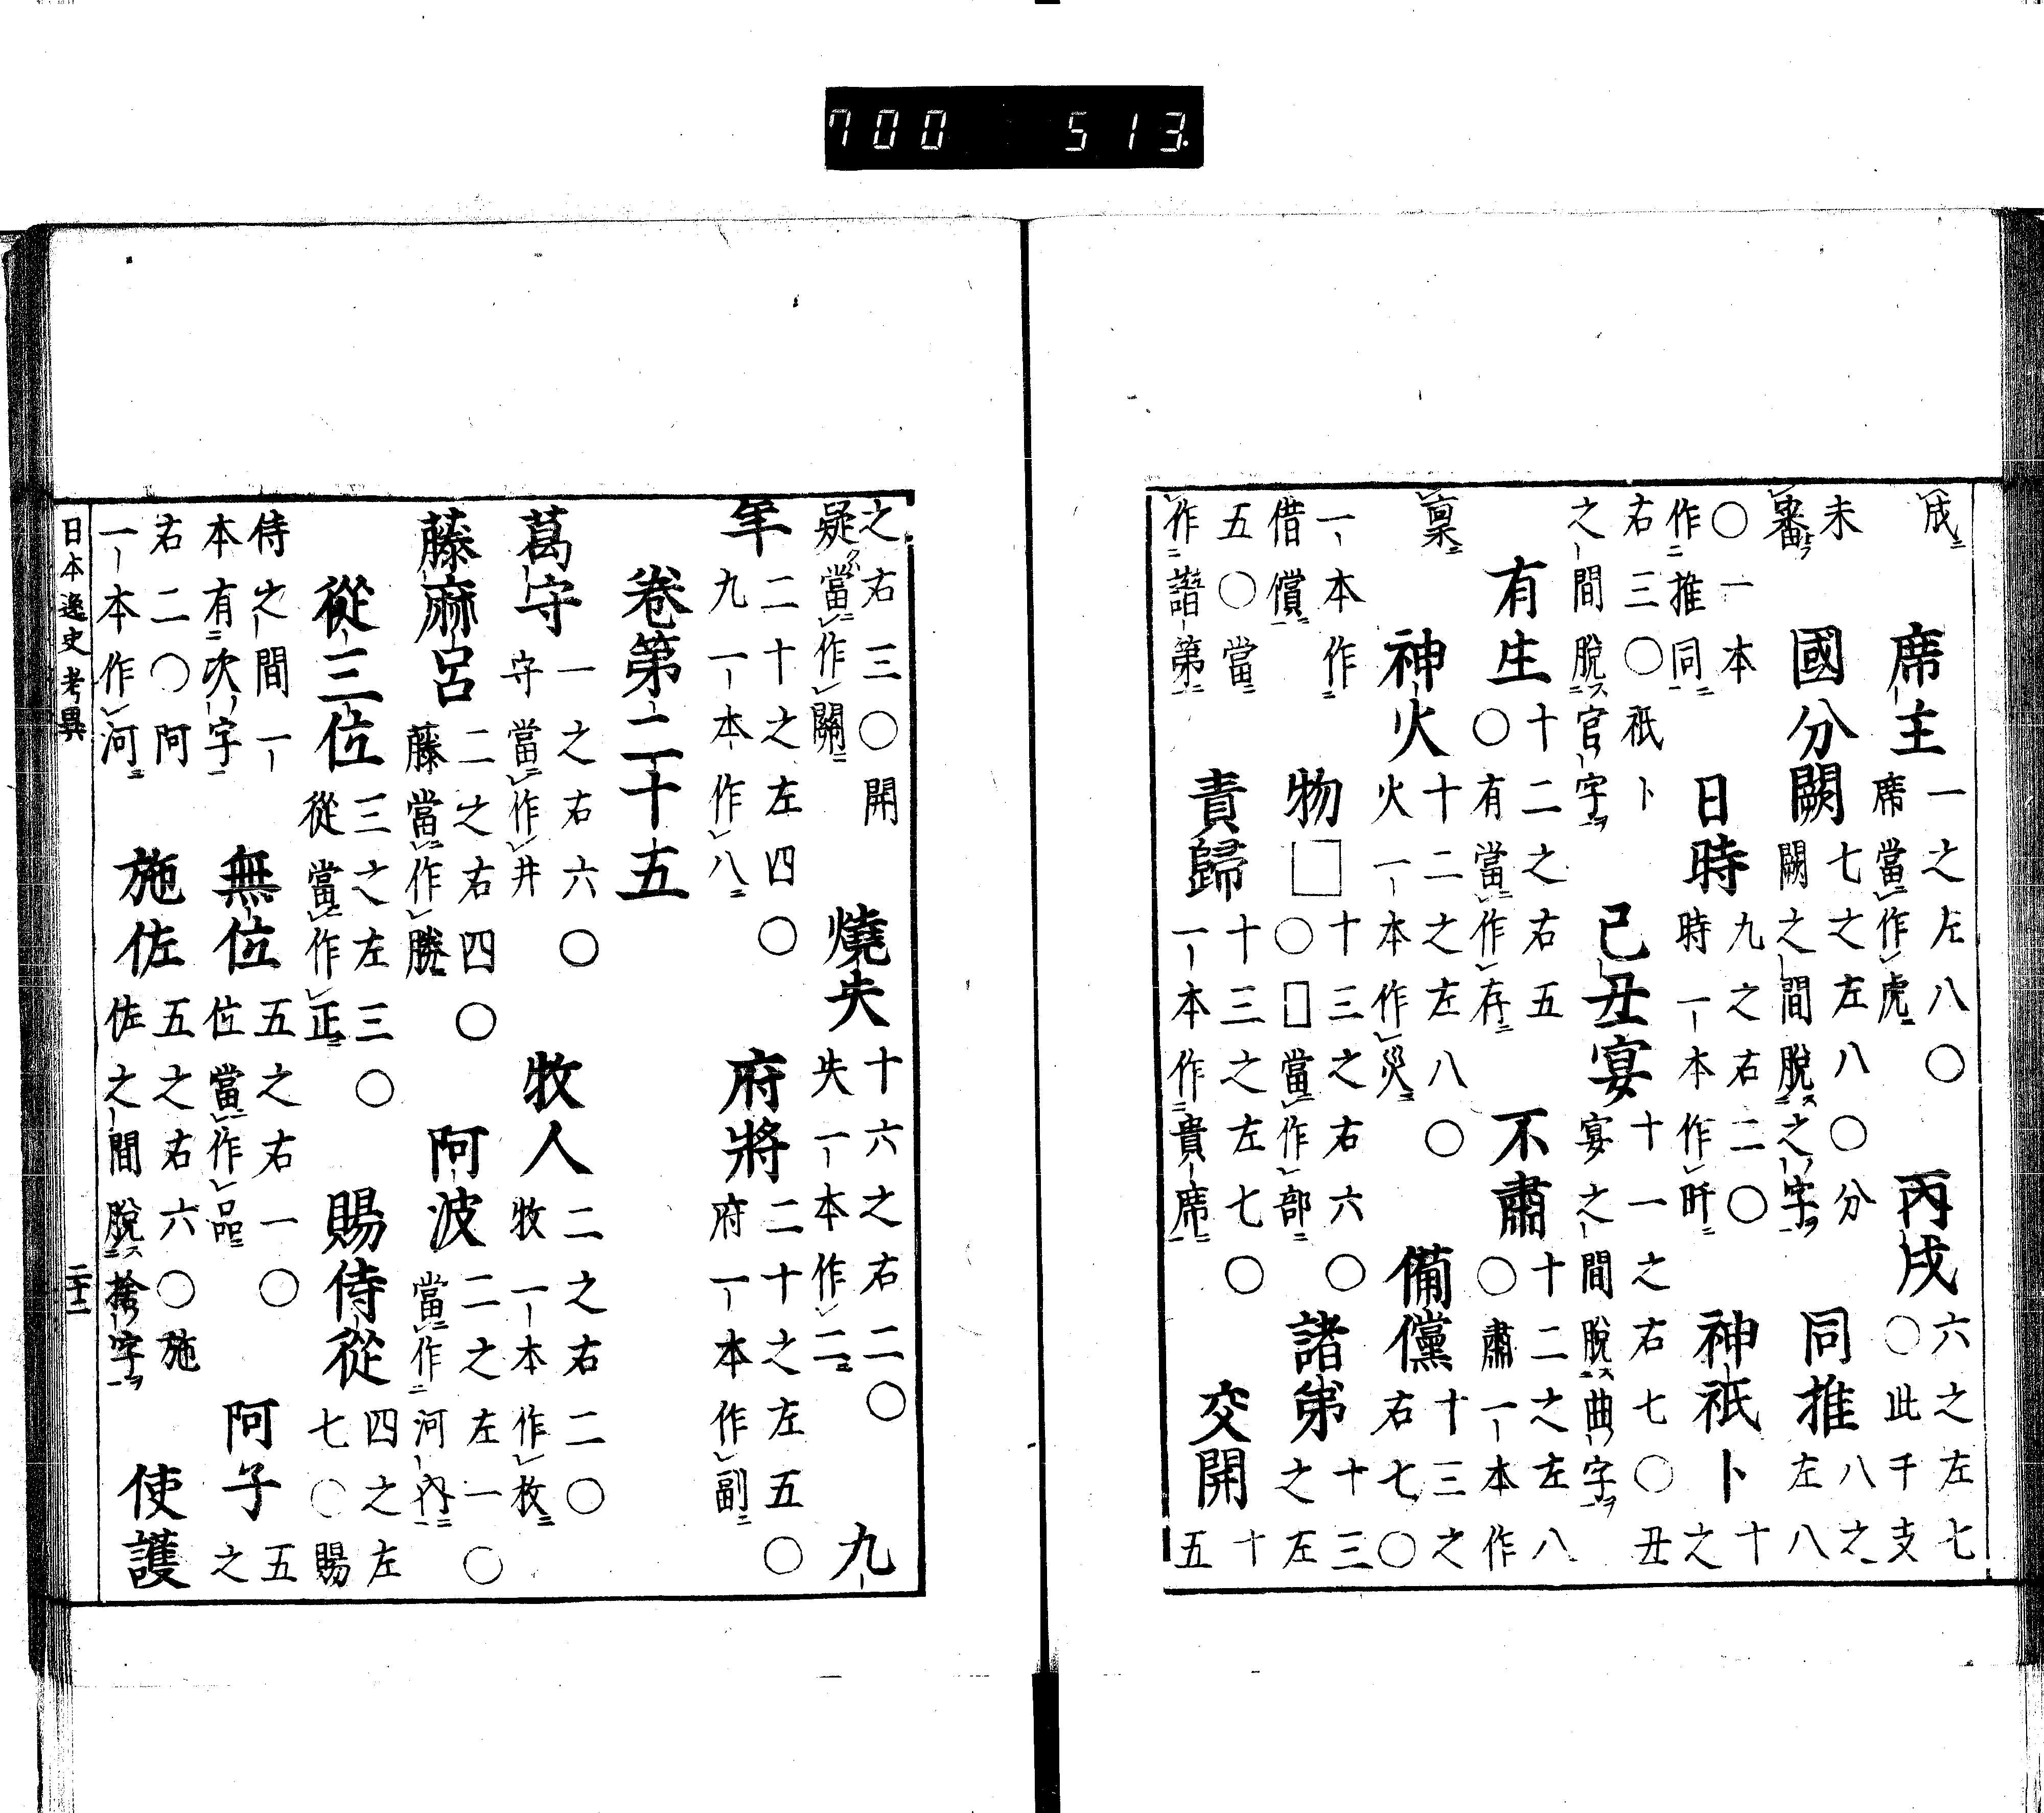 成 席主 一之左八〇席當作虎 丙戌 六之左七〇此干支
未審 國分闕 七之左八〇分闕之間脱之字 同推 八之左八
〇一本作推同 日時 九之右二〇時一本作昕 神祇卜 十之
右三〇祇卜之間脱官字 己丑宴 十一之右七〇丑宴之間脱曲字
有生 十二之右五〇有當作存 不肅 十二之左八〇肅一本作
稟 神火 十二之左八〇火一本作災 備儻 十三之右七〇
一本作借償 物□ 十三之右六〇〇□當作部 諸第 十三之左
五〇當作譛第 責歸 十三之左七〇一本作貴席 交開 十五
之右三〇開疑當作關 燒失 十六之右二〇失一本作二 九
年 二十之左四〇九一本作八 府將 二十之左五〇府一本作副
卷第二十五
葛守 一之右六〇守當作井 牧人 二之右二〇牧一本作枚
藤麻呂 二之右四〇藤當作勝 阿波 二之左一〇當作河內
從三位 三之左三〇從當作正 賜侍從 四之左七〇賜
侍之間一本有次字 無位 五之右一〇位當作品 阿子 五之
右二〇阿一本作河 施佐 五之右六〇施佐之間脱捨字 使護
日本逸史考異 二十二
700 513